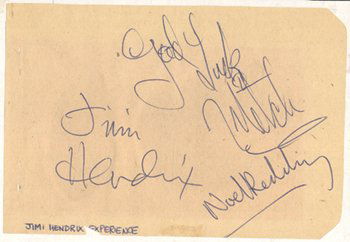 Good Luck
Mitch
Jimi
Hendrix
Noel Redding
JIMI HENDRIX EXPERIENCE